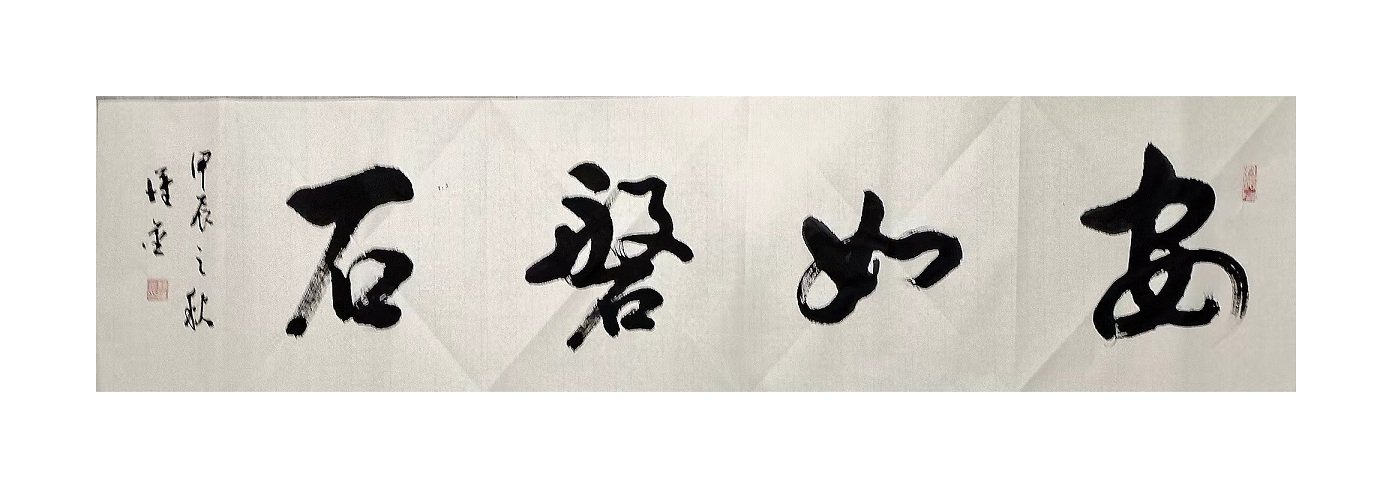 安如磐石
甲辰之秋